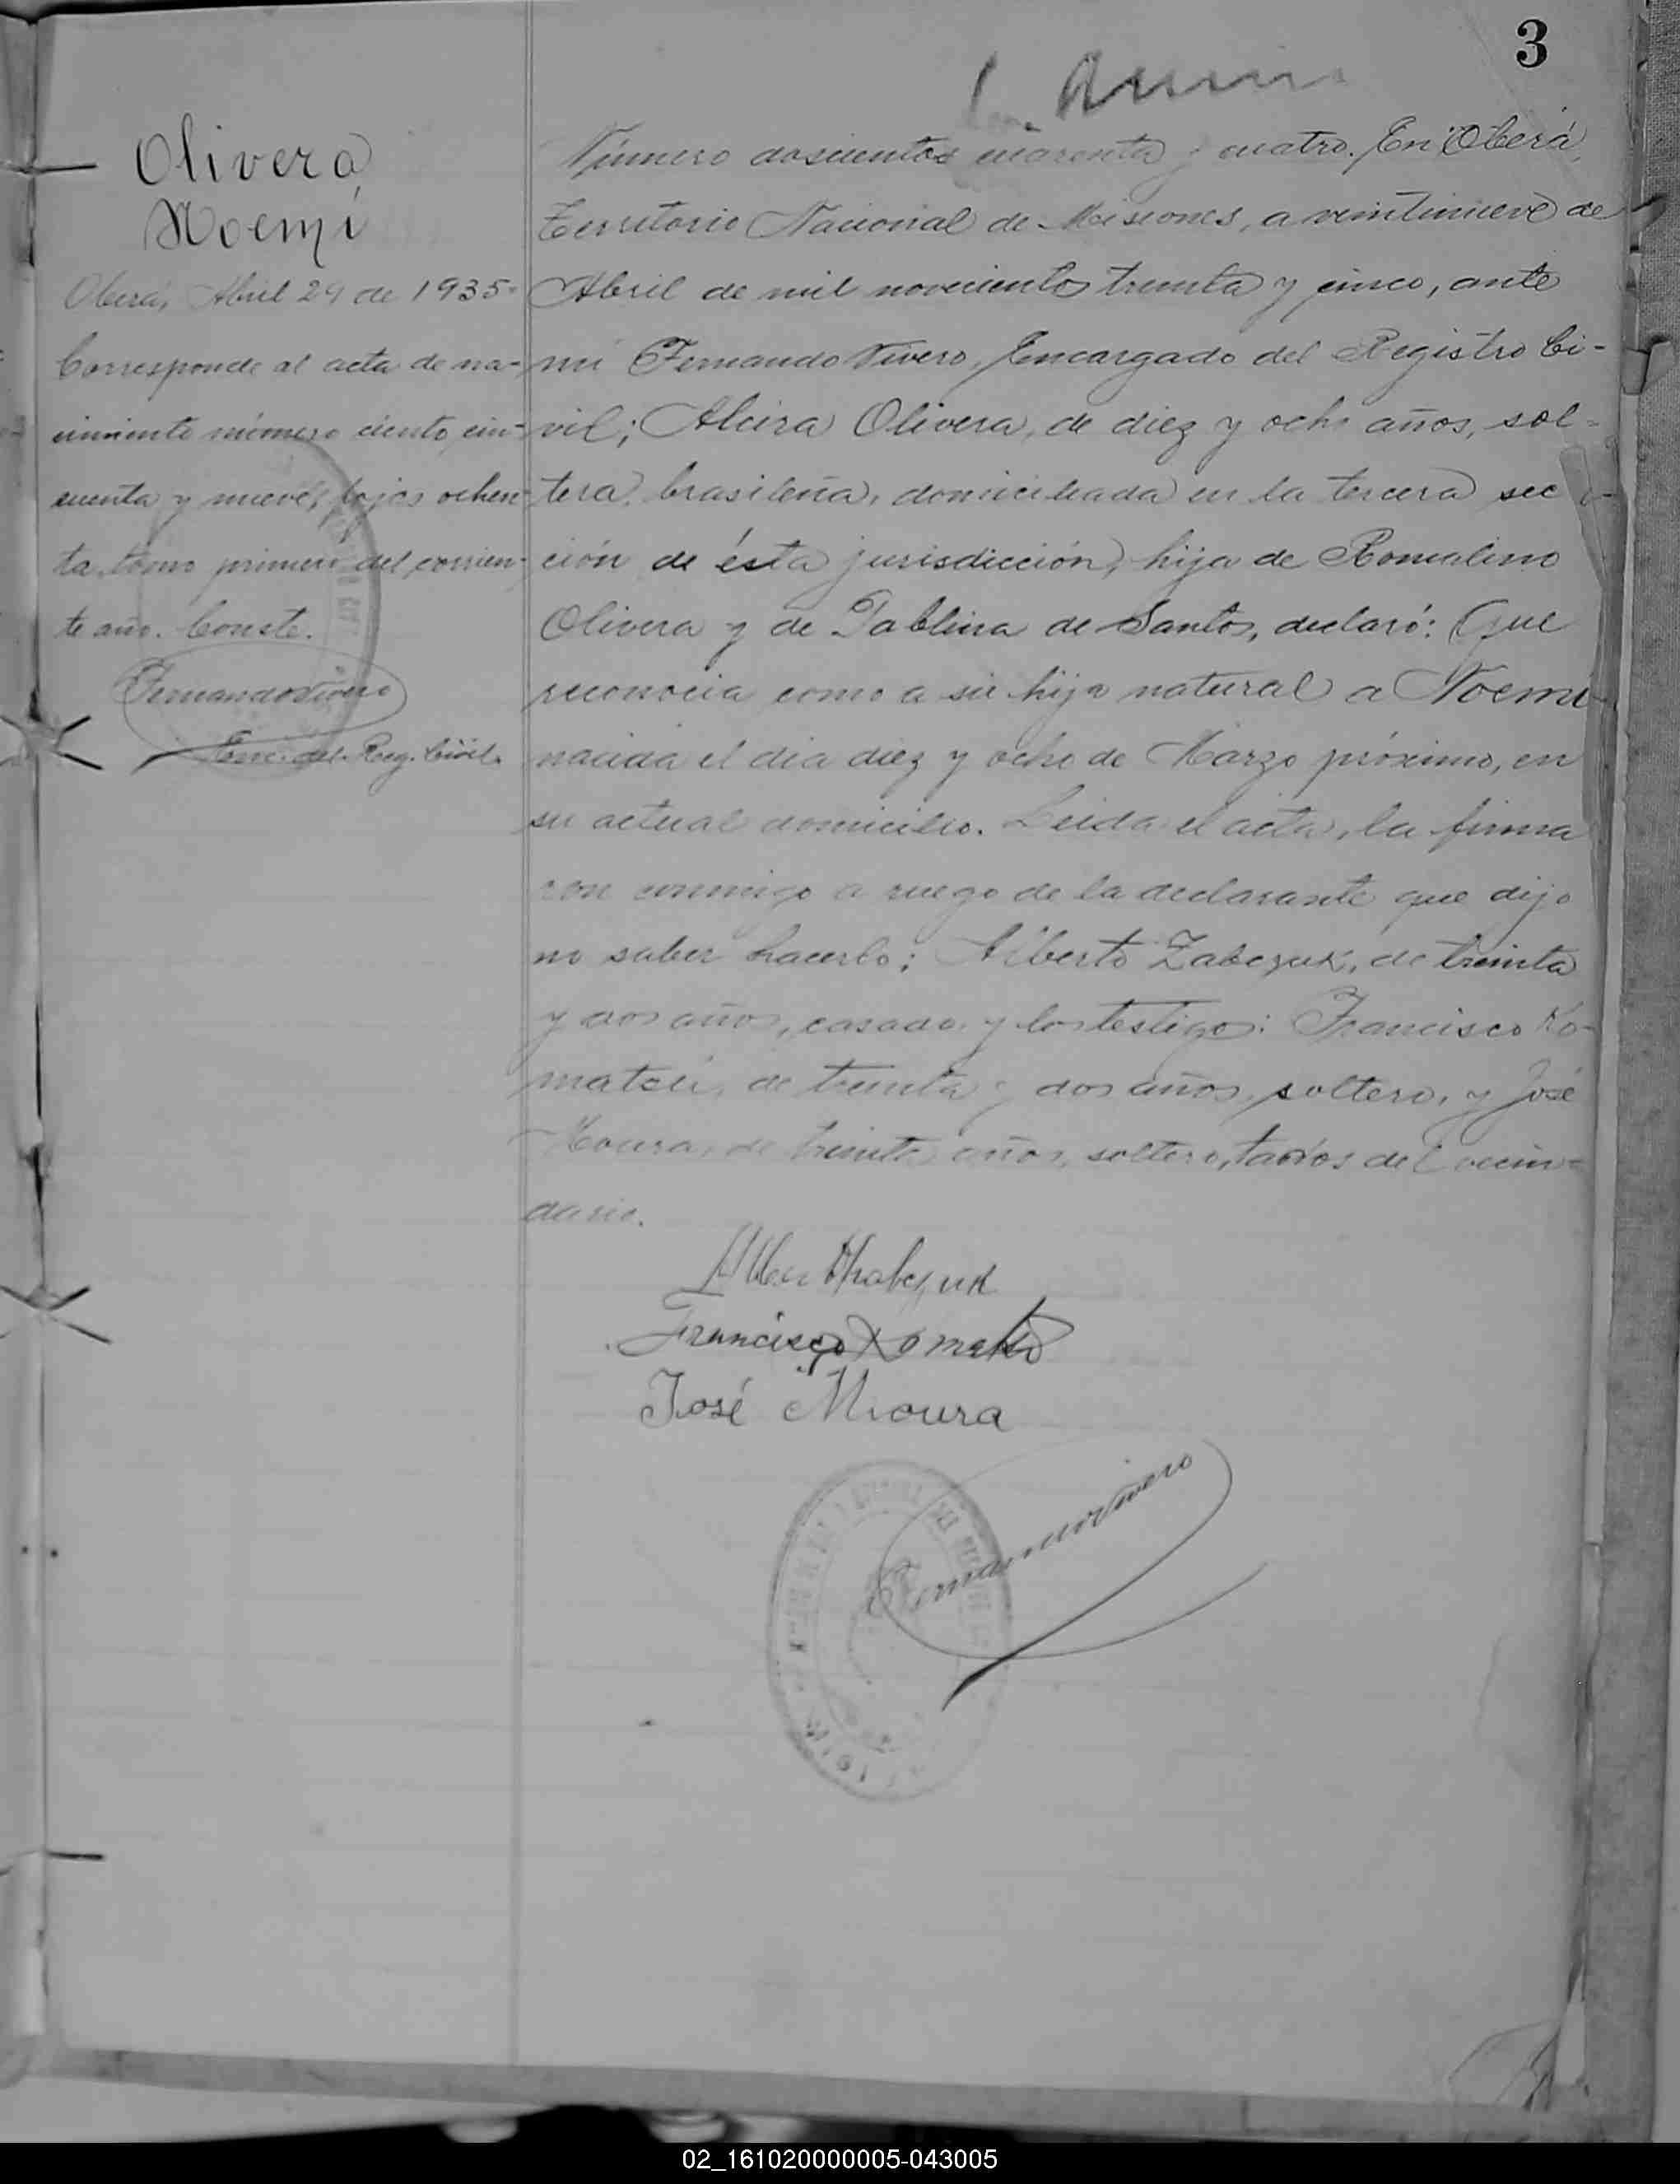 3
Olivera
Noemí
Oberá, Abril 29 de 1935=
Corresponde al acta de na-
cimiento número ciento cin-
cuenta y nueve, fojas ochen-
ta, tomo primero del corrien-
te año. Conste.
Fernando Vivero
Enc. del Reg. Civil.
Número doscientos cuarenta y cuatro. En Oberá,
Territorio Nacional de Misiones, a veintinueve de
Abril de mil novecientos treinta y cinco, ante
mi Fernando Vivero, Encargado del Registro Ci-
vil; Alcira Olivera, de diez y ocho años, sol-
tera, brasileña, domiciliada en la tercera sec-
ción de ésta jurisdicción, hija de Romalino
Olivera y de Pablina de Santos, declaró: Que
reconocia como a su hija natural a Noemí
nacida el dia diez y ocho de Marzo próximo, en
su actual domicilio. Leida el acta, la firma
ron conmigo a ruego de la declarante que dijo
no saber hacerlo: Alberto Zabczuk, de treinta
y dos años, casado y los testigos: Francisco
de treinta y dos años, soltero, y José
Moura, de treinta años, soltero, todos del vecin-
dario.
Francisco
José Moura
Fernando Vivero
02_161020000005-043005